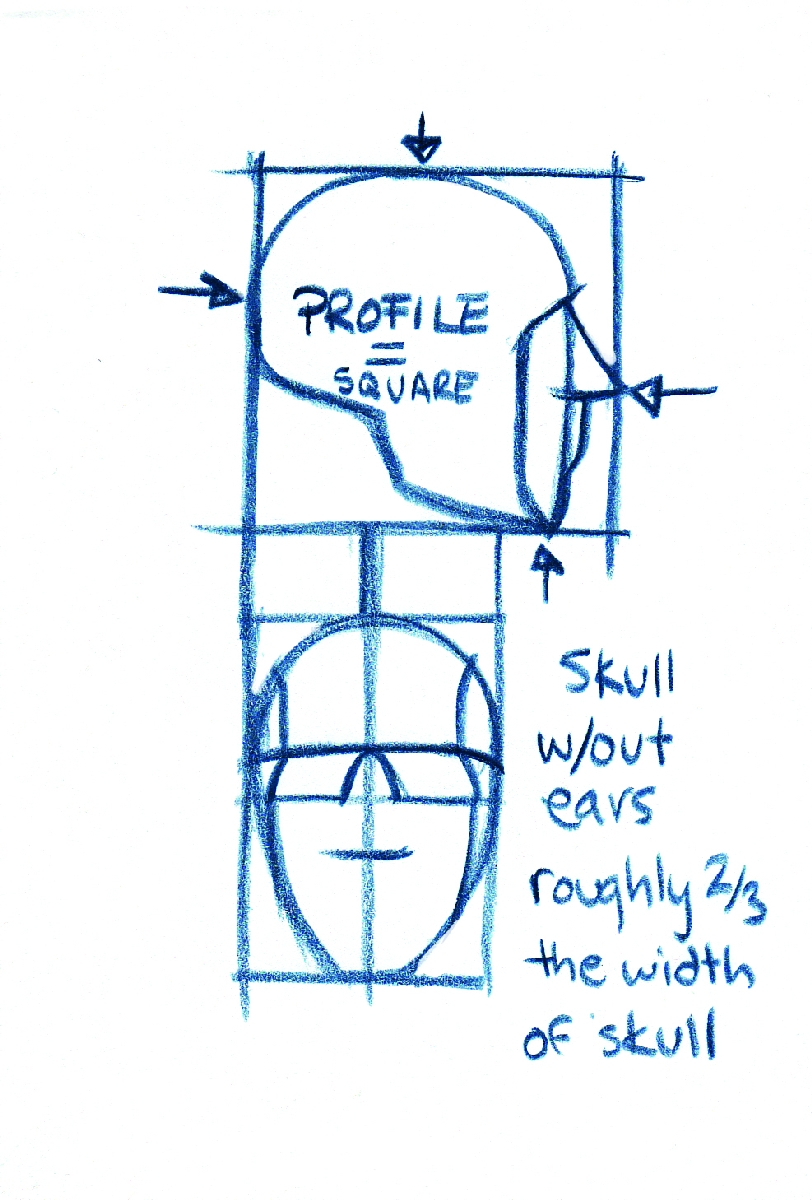 PROFILE
=
SQUARE
Skull
w/out
ears
roughly 2/3
the width
of skull